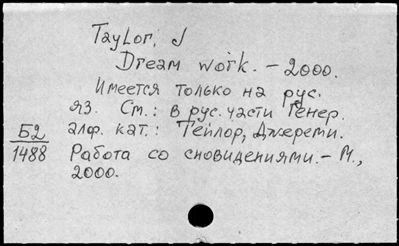 Taylor, J
Dream work. – 2000.
Имеется только на рус.
яз. См.: в рус. части Генер.
Б2
1488
алф. кат.: Тейлор, Джереми.
Работа со сновидениями. – М.,
2000.